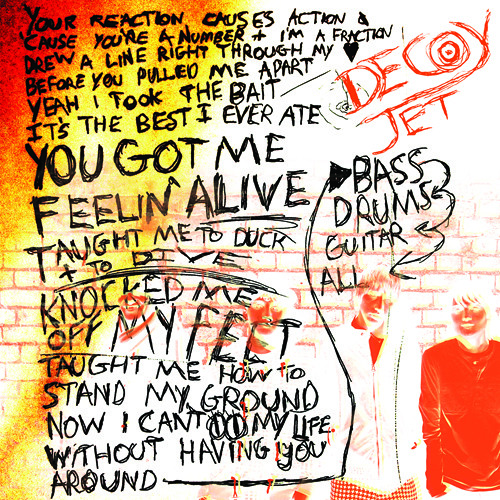 YOUR REACTION CAUSES ACTION &
'CAUSE YOU'RE A NUMBER + I'M A FRACTION
DREW A LINE RIGHT THROUGH MY ♥
BEFORE YOU PULLED ME APART
YEAH I TOOK THE BAIT
IT'S THE BEST I EVER ATE
DECOY
JET
YOU GOT ME
FEELIN' ALIVE
TAUGHT ME TO DUCK
+ TO DIVE
KNOCKED ME
OFF MY FEET
TAUGHT ME HOW TO
STAND MY GROUND
NOW I CANT MY LIFE
WITHOUT HAVING YOU
AROUND
BASS
DRUMS
GUITAR
ALL